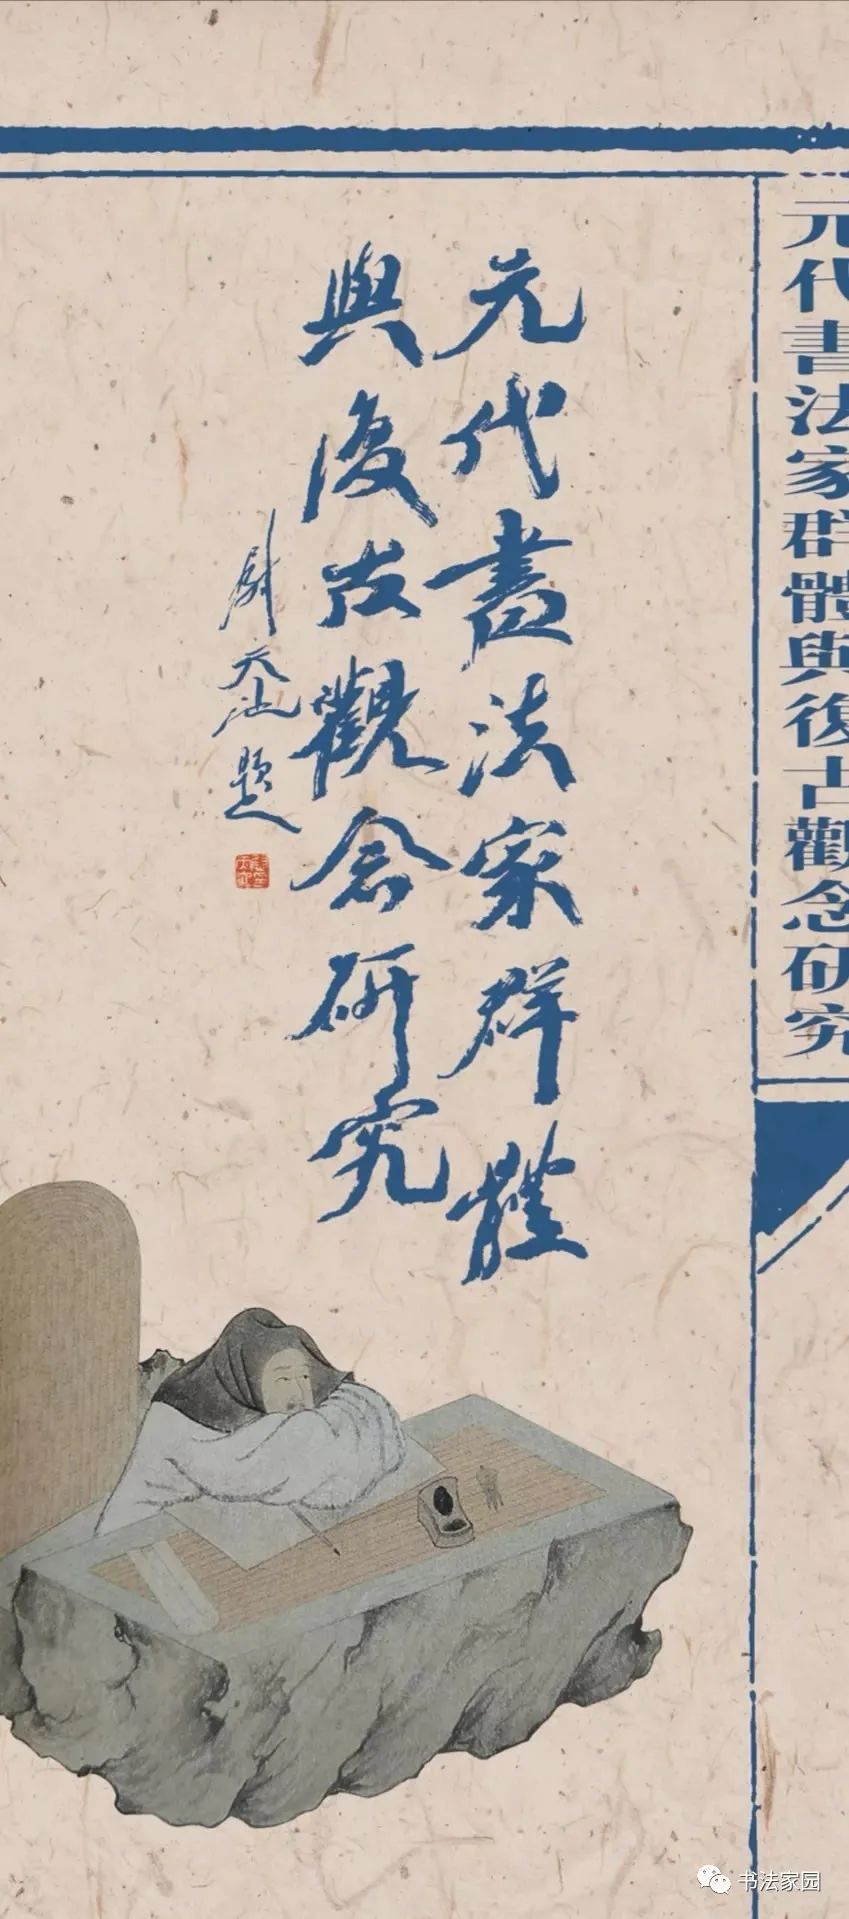 元代書法家群體與復古觀念研究
元代書法家群體
與復古觀念研究
尉天池題
书法家园